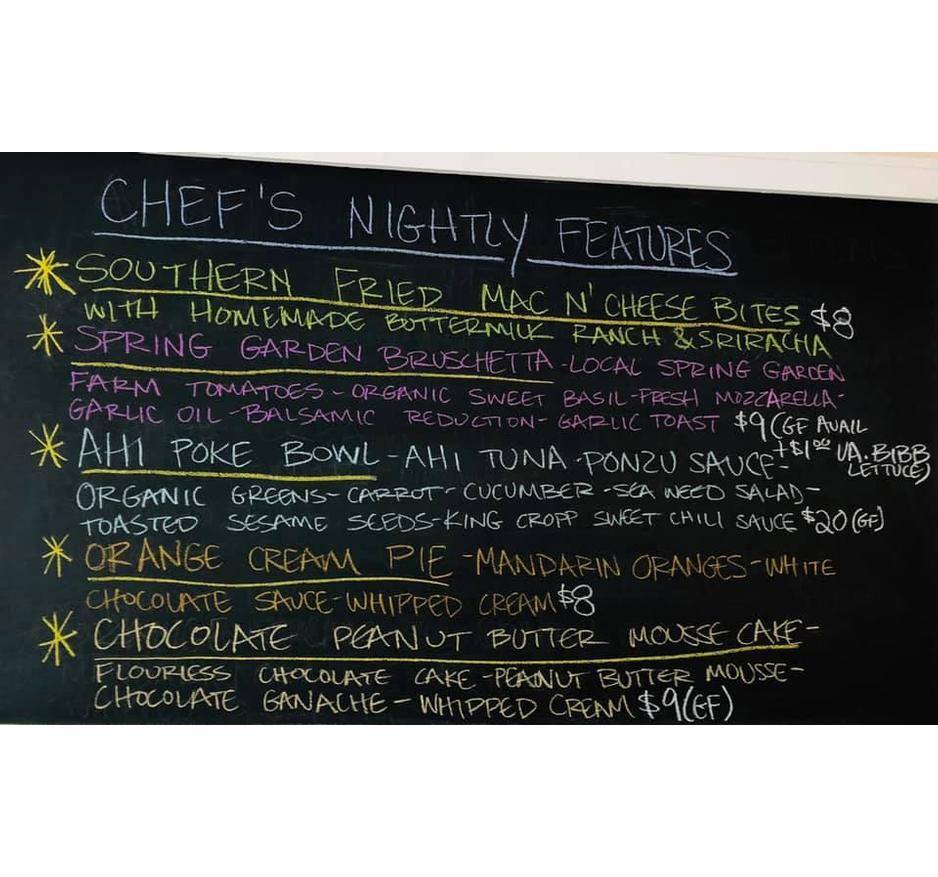 CHEF'S NIGHTLY FEATURES
SOUTHERN FRIED MAC N' CHEESE BITES $8
WITH HOMEMADE BUTTERMILK RANCH & SRIRACHA
SPRING GARDEN BRUSCHETTA -LOCAL SPRING GARDEN
FARM TOMATOES- ORGANIC SWEET BASIL-FRESH MOZZARELLA-
GARLIC OIL -BALSAMIC REDUCTION- GARLIC TOAST $9 (GF AVAIL
+$1.00 VA. BIBB
LETTUCE)
AHI POKE BOWL -AHI TUNA -PONZU SAUCE-
ORGANIC GREENS- CARROT- CUCUMBER -SEA WEED SALAD-
TOASTED SESAME SEEDS-KING CROPP SWEET CHILI SAUCE $20 (GF)
ORANGE CREAM PIE -MANDARIN ORANGES-WHITE
CHOCOLATE SAUCE-WHIPPED CREAM $8
CHOCOLATE PEANUT BUTTER MOUSSE CAKE-
FLOURLESS CHOCOLATE CAKE -PEANUT BUTTER MOUSSE-
CHOCOLATE GANACHE - WHIPPED CREAM $9 (GF)